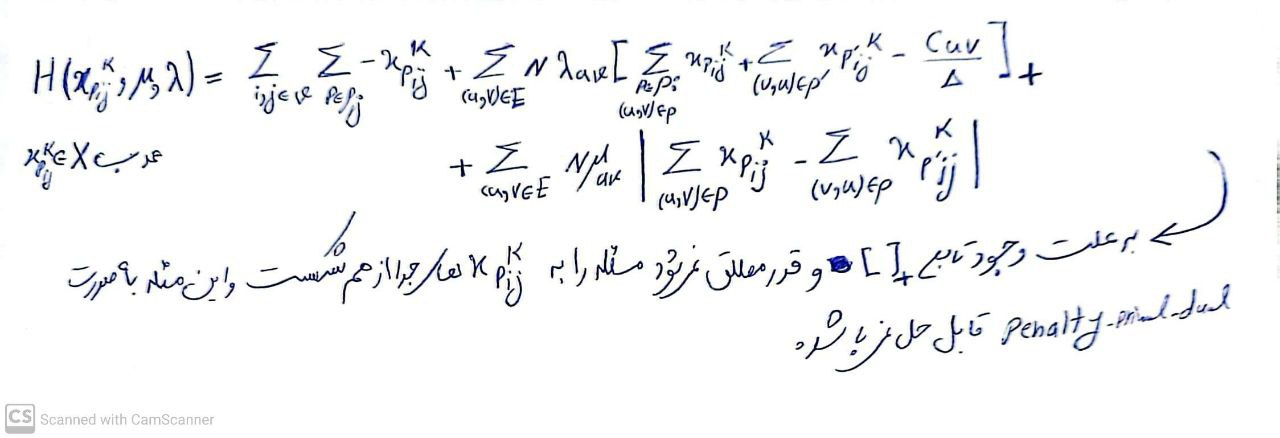 H(x_{p_{ij}}^K, μ, λ) = Σ_{i,j∈υ} Σ_{p∈P_{ij}} -x_{p_{ij}}^K + Σ_{(u,v)∈E} N λ_{uv} [ Σ_{p∈P_{ij} (u,v)∈p} x_{p_{ij}}^K + Σ_{(v,u)∈p'} x_{p'_{ij}}^K - C_{uv}/Δ ]_+
x_{p_{ij}}^K ∈ X + Σ_{(u,v)∈E} N μ_{uv} | Σ_{(u,v)∈p} x_{p_{ij}}^K - Σ_{(v,u)∈p} x_{p'_{ij}}^K |
به علت وجود تابع []_+ و قدر مطلق نمی‌شود مسئله را به x_{p_{ij}}^K های جدا از هم شکست و این مسئله به صورت
penalty-primal-dual قابل حل نمی باشد.
CS Scanned with CamScanner